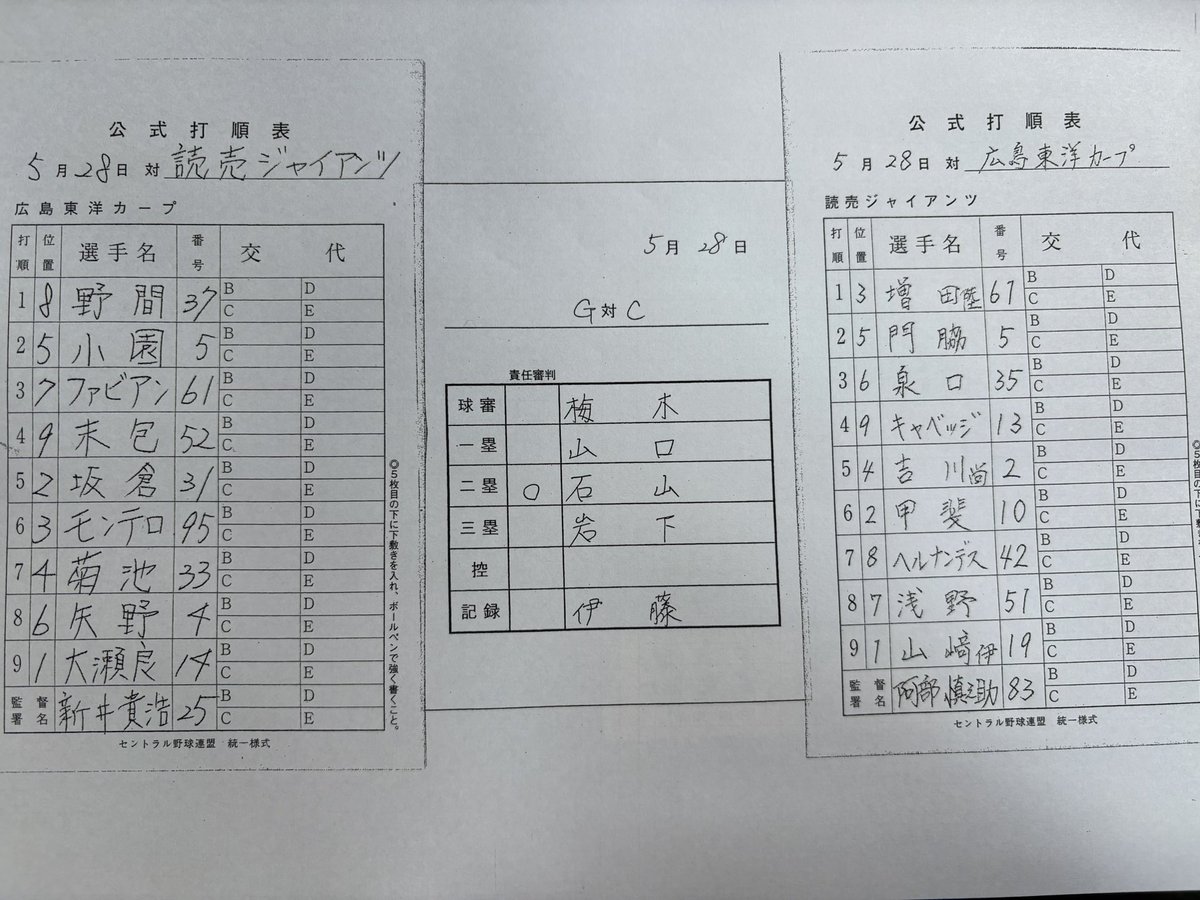 公式打順表
5月28日 対 読売ジャイアンツ
広島東洋カープ
打順 位置 選手名 番号 交代
1 8 野間 37 B D C E
2 5 小園 5 B D C E
3 7 ファビアン 61 B D C E
4 9 末包 52 B D C E
5 2 坂倉 31 B D C E
6 3 モンテロ 95 B D C E
7 4 菊池 33 B D C E
8 6 矢野 4 B D C E
9 1 大瀬良 14 B D C E
監督署名 新井貴浩 25 B D C E
セントラル野球連盟 統一様式
◎5枚目の下に下敷きを入れ、ボールペンで強く書くこと。
5月28日
G対C
責任審判
球審 梅木
一塁 山口
二塁 ○ 石山
三塁 岩下
控
記録 伊藤
公式打順表
5月28日 対 広島東洋カープ
読売ジャイアンツ
打順 位置 選手名 番号 交代
1 3 増田陸 61 B D C E
2 5 門脇 5 B D C E
3 6 泉口 35 B D C E
4 9 キャベッジ 13 B D C E
5 4 吉川尚 2 B D C E
6 2 甲斐 10 B D C E
7 8 ヘルナンデス 42 B D C E
8 7 浅野 51 B D C E
9 1 山﨑伊 19 B D C E
監督署名 阿部慎之助 83 B D C E
セントラル野球連盟 統一様式
◎5枚目の下に下敷きを入れ